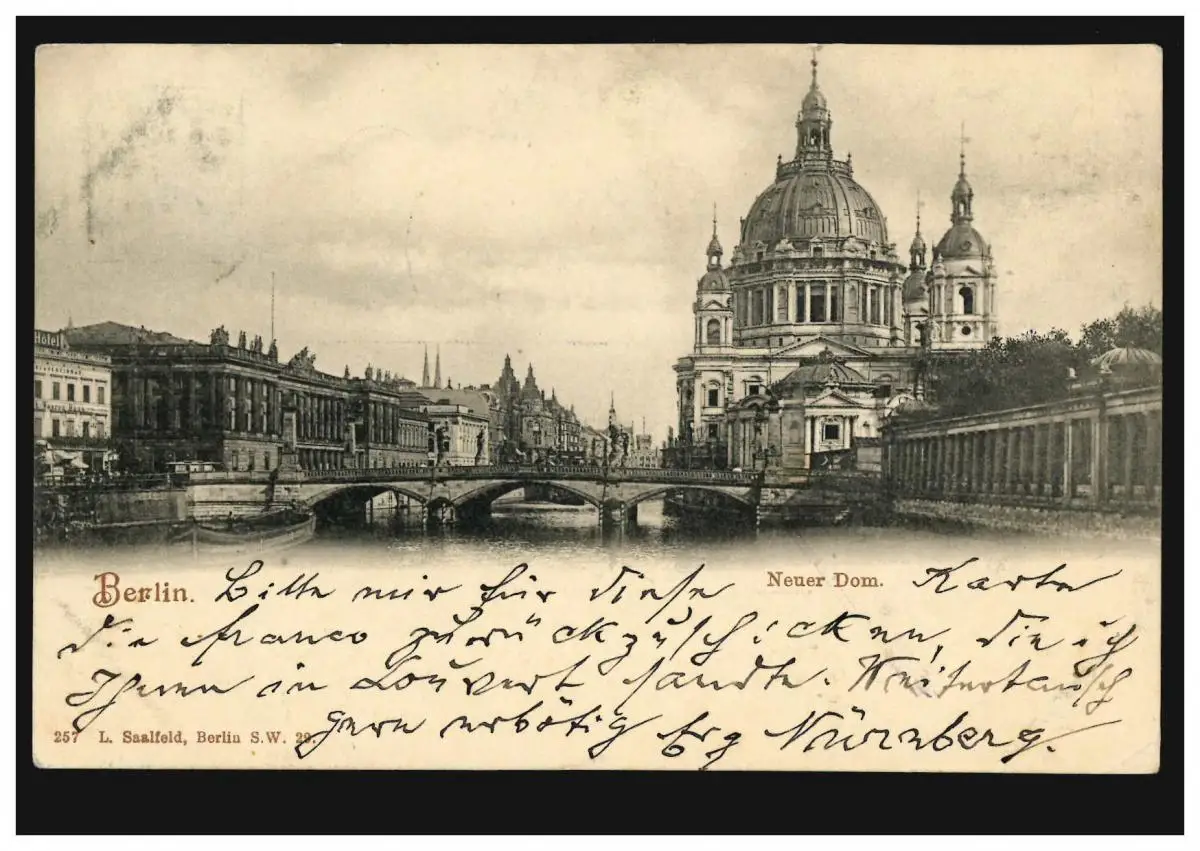 Hotel
Berlin. Bitte mir für diese Neuer Dom. Karte
die franco zurückzuschicken, die ich
Ihnen in Couvert sandte. Weitertausch
257 L. Saalfeld, Berlin S.W. 29. gern erbötig Nürnberg.